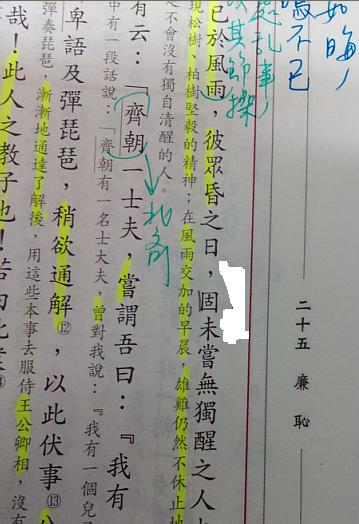 如晦，
鳴不已
二十五 廉 恥
亂事，
其節操
已於風雨，彼眾昏之日，固未嘗無獨醒之人
現松樹、柏樹堅毅的精神；在風雨交加的早晨，雄雞仍然不休止地
不會沒有獨自清醒的人。
北齊
有云：「齊朝一士夫，嘗謂吾曰：『我有
中有一段話說：「齊朝有一名士大夫，曾對我說：『我有一個兒
卑語及彈琵琶，稍欲通解⑫，以此伏事⑬
彈奏琵琶，漸漸地通達了解後，用這些本事去服侍王公卿相，沒有
哉！此人之教子也！若由此